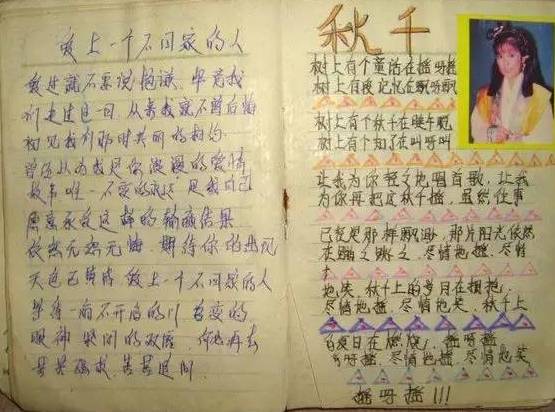 爱上一个不回家的人
爱过就不要说抱歉 毕竟我
们走过这一回 从来我就不曾后悔
初见我们那时共有的相约
曾经以为我是你浪漫的爱情
故事 唯一不变的永远 是我自己
愿意承受这样的输赢结果
依然无怨无悔 期待你的出现
天色已 爱上一个不回家的人
等待一扇不开启的门 善变的
眼神 紧闭的双唇 何必再去
苦苦强求 苦苦追问
秋千
树上有个童话在摇呀摇
树上有段记忆在飘呀飘
树上有个秋千在
树上有个知了在叫呀叫
让我为你轻轻地唱首歌,让我
为你再把这秋千摇,虽然往事
已经是那样飘渺,那片阳光依然
在跳之跳之,尽情地摇,尽情
地笑,秋千上的岁月在拥抱
尽情地摇,尽情地笑,秋千上
的夏日在燃烧,摇
呀摇,尽情地摇,尽情地笑
摇呀摇!!!